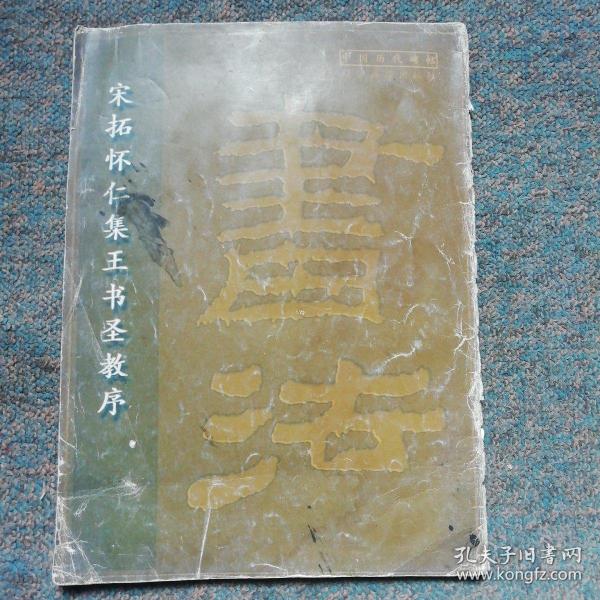 中国历代碑帖
宋拓怀仁集王书圣教序
書法
孔夫子旧书网
www.kongfz.com